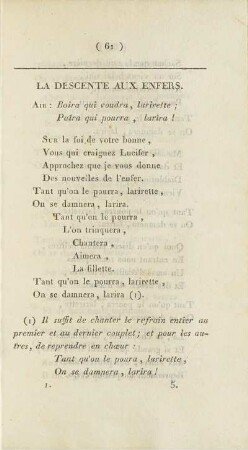 ( 61 )
LA DESCENTE AUX ENFERS.
AIR : Boira qui voudra, larirette ;
Paîra qui pourra, larira !
Sur la foi de votre bonne,
Vous qui craignez Lucifer,
Approchez que je vous donne
Des nouvelles de l'enfer.
Tant qu'on le pourra, larirette,
On se damnera, larira.
Tant qu'on le pourra,
L'on trinquera,
Chantera,
Aimera
La fillette.
Tant qu'on le pourra, larirette,
On se damnera, larira (1).
(1) Il suffit de chanter le refrain entier au
premier et au dernier couplet; et pour les au-
tres, de reprendre en chœur :
Tant qu'on le poura, larirette,
On se damnera, larira !
1. 5.